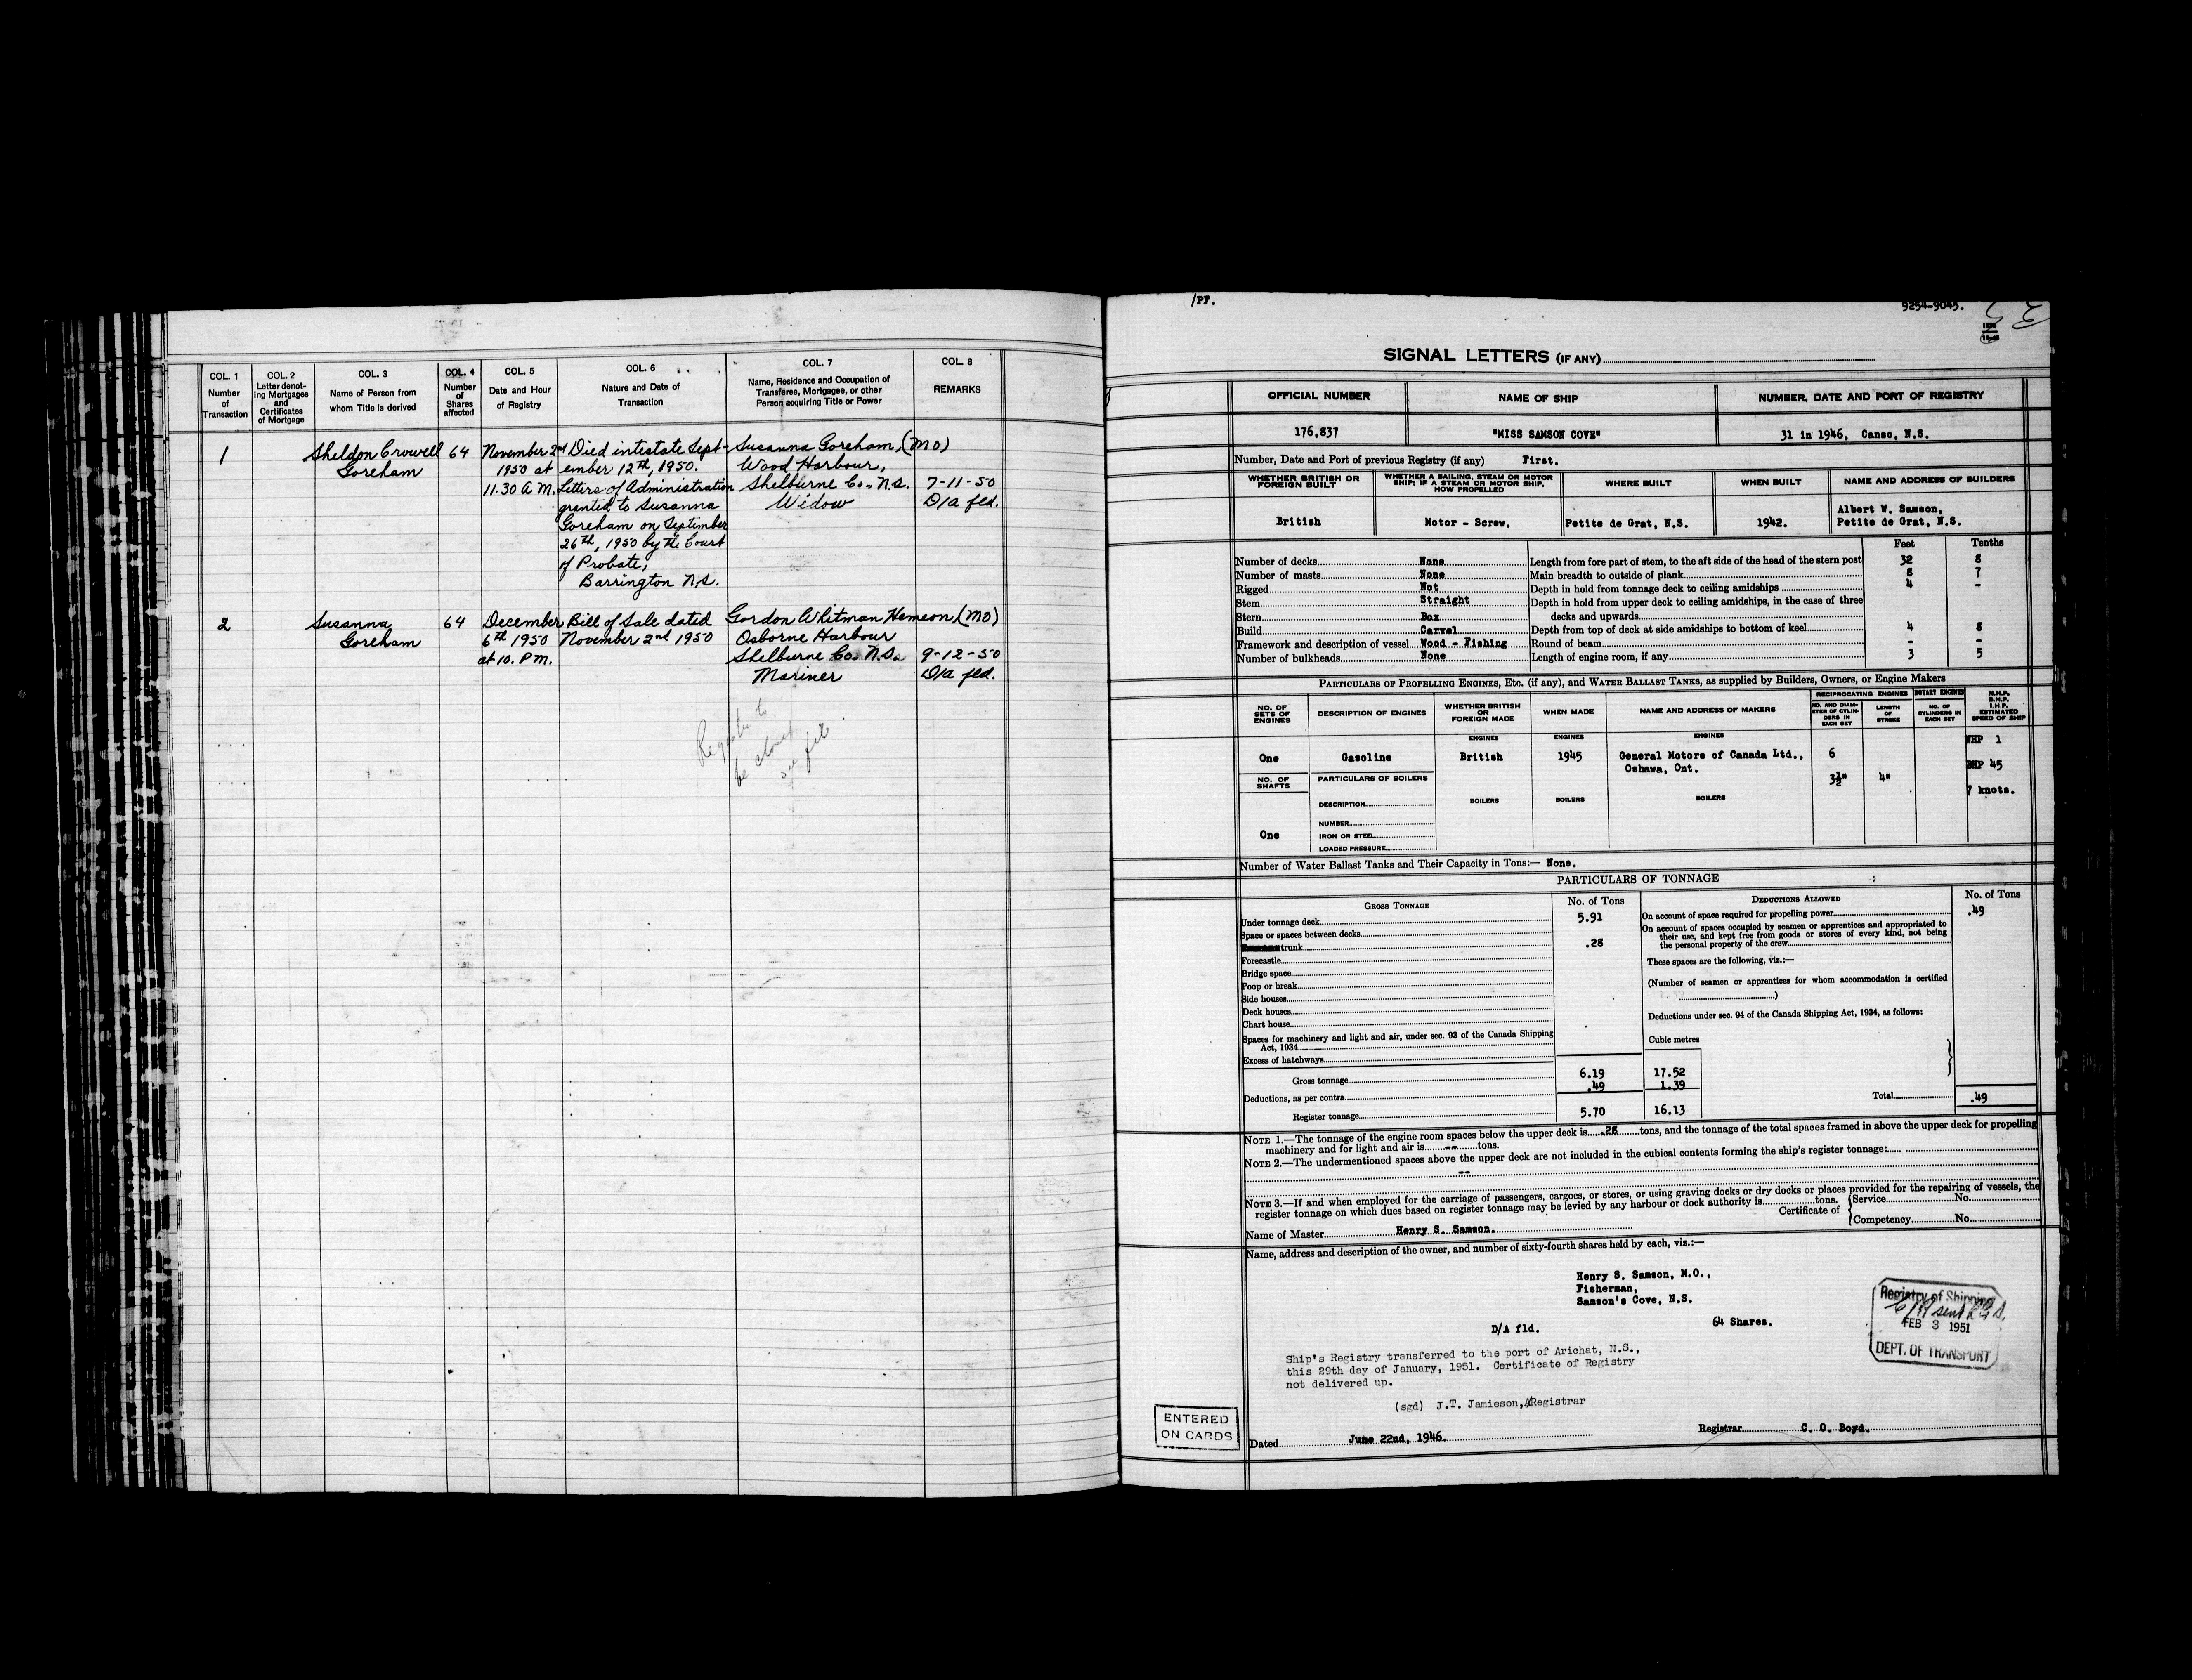 COL. 1
Number
of
Transaction
COL. 2
Letter denot-
ing Mortgages
and
Certificates
of Mortgage
COL. 3
Name of Person from
whom Title is derived
COL. 4
Number
of
Shares
affected
COL. 5
Date and Hour
of Registry
COL. 6
Nature and Date of
Transaction
COL. 7
Name, Residence and Occupation of
Transferee, Mortgagee, or other
Person acquiring Title or Power
COL. 8
REMARKS
1
Sheldon Crowell
Goreham
64
November 2nd
1950 at
11.30 A.M.
Died intestate Sept-
ember 12th, 1950.
Letters of Administration
granted to Susanna
Goreham on September
26th, 1950 by the Court
of Probate,
Barrington N.S.
Susanna Goreham, (MO)
Wood Harbour,
Shelburne Co. N.S.
Widow
7-11-50
D/a fld.
2
Susanna
Goreham
64
December
6th 1950
at 10. P.M.
Bill of Sale dated
November 2nd 1950
Gordon Whitman Hemeon, (MO)
Osborne Harbour
Shelburne Co. N.S.
Mariner
9-12-50
D/a fld.
Register to
be closed
see file
/PF.
9254-9045.
SIGNAL LETTERS (IF ANY)
OFFICIAL NUMBER
NAME OF SHIP
NUMBER, DATE AND PORT OF REGISTRY
176,837
"MISS SAMSON COVE"
31 in 1946, Canso, N.S.
Number, Date and Port of previous Registry (if any) First.
WHETHER BRITISH OR
FOREIGN BUILT
WHETHER A SAILING, STEAM OR MOTOR
SHIP; IF A STEAM OR MOTOR SHIP,
HOW PROPELLED
WHERE BUILT
WHEN BUILT
NAME AND ADDRESS OF BUILDERS
British
Motor - Screw.
Petite de Grat, N.S.
1942.
Albert W. Samson,
Petite de Grat, N.S.
Feet
Tenths
Number of decks None
Number of masts None
Rigged Not
Stem Straight
Stern Box
Build Carvel
Framework and description of vessel Wood - Fishing
Number of bulkheads None
Length from fore part of stem, to the aft side of the head of the stern post 32 8
Main breadth to outside of plank 8 7
Depth in hold from tonnage deck to ceiling amidships 4 -
Depth in hold from upper deck to ceiling amidships, in the case of three
decks and upwards
Depth from top of deck at side amidships to bottom of keel 4 8
Round of beam - -
Length of engine room, if any 3 5
PARTICULARS OF PROPELLING ENGINES, ETC. (if any), and WATER BALLAST TANKS, as supplied by Builders, Owners, or Engine Makers
NO. OF
SETS OF
ENGINES
DESCRIPTION OF ENGINES
WHETHER BRITISH
OR
FOREIGN MADE
WHEN MADE
NAME AND ADDRESS OF MAKERS
RECIPROCATING ENGINES
NO. AND DIAM-
ETER OF CYLIN-
DERS IN
EACH SET
LENGTH
OF
STROKE
ROTARY ENGINES
NO. OF
CYLINDERS IN
EACH SET
N.H.P.
B.H.P.
I.H.P.
ESTIMATED
SPEED OF SHIP
ENGINES
ENGINES
ENGINES
One
Gasoline
British
1945
General Motors of Canada Ltd.,
Oshawa, Ont.
6
3½"
4"
NHP 1
BHP 45
7 knots.
NO. OF
SHAFTS
PARTICULARS OF BOILERS
DESCRIPTION
NUMBER
IRON OR STEEL
LOADED PRESSURE
BOILERS
BOILERS
BOILERS
One
Number of Water Ballast Tanks and Their Capacity in Tons:— None.
PARTICULARS OF TONNAGE
GROSS TONNAGE
No. of Tons
DEDUCTIONS ALLOWED
No. of Tons
Under tonnage deck 5.91
Space or spaces between decks
trunk .28
Forecastle
Bridge space
Poop or break
Side houses
Deck houses
Chart house
Spaces for machinery and light and air, under sec. 93 of the Canada Shipping
Act, 1934
Excess of hatchways
Gross tonnage 6.19 17.52
Deductions, as per contra .49 1.39
Register tonnage 5.70 16.13
On account of space required for propelling power .49
On account of spaces occupied by seamen or apprentices and appropriated to
their use, and kept free from goods or stores of every kind, not being
the personal property of the crew
These spaces are the following, viz.:—
(Number of seamen or apprentices for whom accommodation is certified
)
Deductions under sec. 94 of the Canada Shipping Act, 1934, as follows:
Cubic metres
Total .49
NOTE 1.—The tonnage of the engine room spaces below the upper deck is .28 tons, and the tonnage of the total spaces framed in above the upper deck for propelling
machinery and for light and air is -- tons.
NOTE 2.—The undermentioned spaces above the upper deck are not included in the cubical contents forming the ship's register tonnage:
--
NOTE 3.—If and when employed for the carriage of passengers, cargoes, or stores, or using graving docks or dry docks or places provided for the repairing of vessels, the
register tonnage on which dues based on register tonnage may be levied by any harbour or dock authority is tons.
Certificate of
Service No.
Competency No.
Name of Master Henry S. Samson.
Name, address and description of the owner, and number of sixty-fourth shares held by each, viz.:—
Henry S. Samson, M.O.,
Fisherman,
Samson's Cove, N.S.
64 Shares.
D/A fld.
Ship's Registry transferred to the port of Arichat, N.S.,
this 29th day of January, 1951. Certificate of Registry
not delivered up.
(sgd) J.T. Jamieson, A/Registrar
Registry of Shipping
FEB 3 1951
DEPT. OF TRANSPORT
ENTERED
ON CARDS
Dated June 22nd, 1946.
Registrar C. O. Boyd.